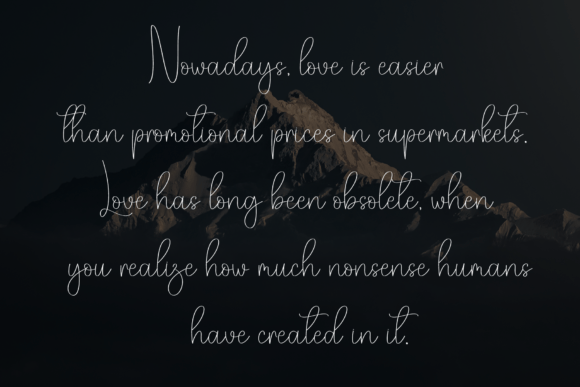 Nowadays, love is easier
than promotional prices in supermarkets.
Love has long been obsolete, when
you realize how much nonsense humans
have created in it.